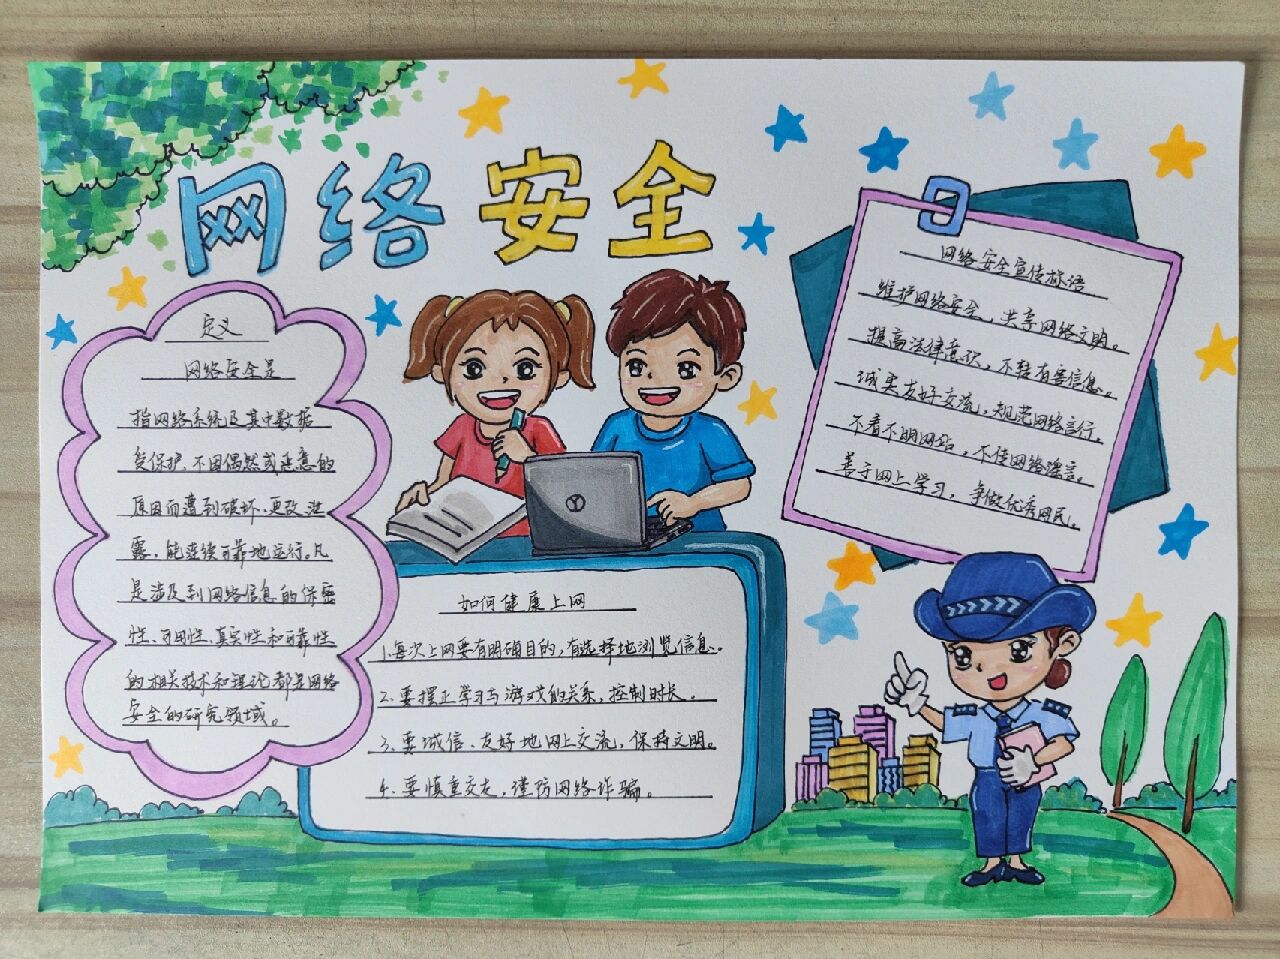 网络安全
定义
网络安全是
指网络系统及其中数据
受保护，不因偶然或恶意的
原因而遭到破坏、更改、泄
露，能连续可靠地运行。凡
是涉及到网络信息的保密
性、可用性、真实性和可靠性
的相关技术和理论都是网络
安全的研究领域。
如何健康上网
1.每次上网要有明确目的，有选择地浏览信息。
2.要摆正学习与游戏的关系，控制时长。
3、要诚信、友好地网上交流，保持文明。
4、要慎重交友，谨防网络诈骗。
网络安全宣传标语
维护网络安全，共享网络文明。
提高法律意识，不转有害信息。
诚实友好交流，规范网络言行。
不看不明网站，不传网络谣言。
善于网上学习，争做优秀网民。